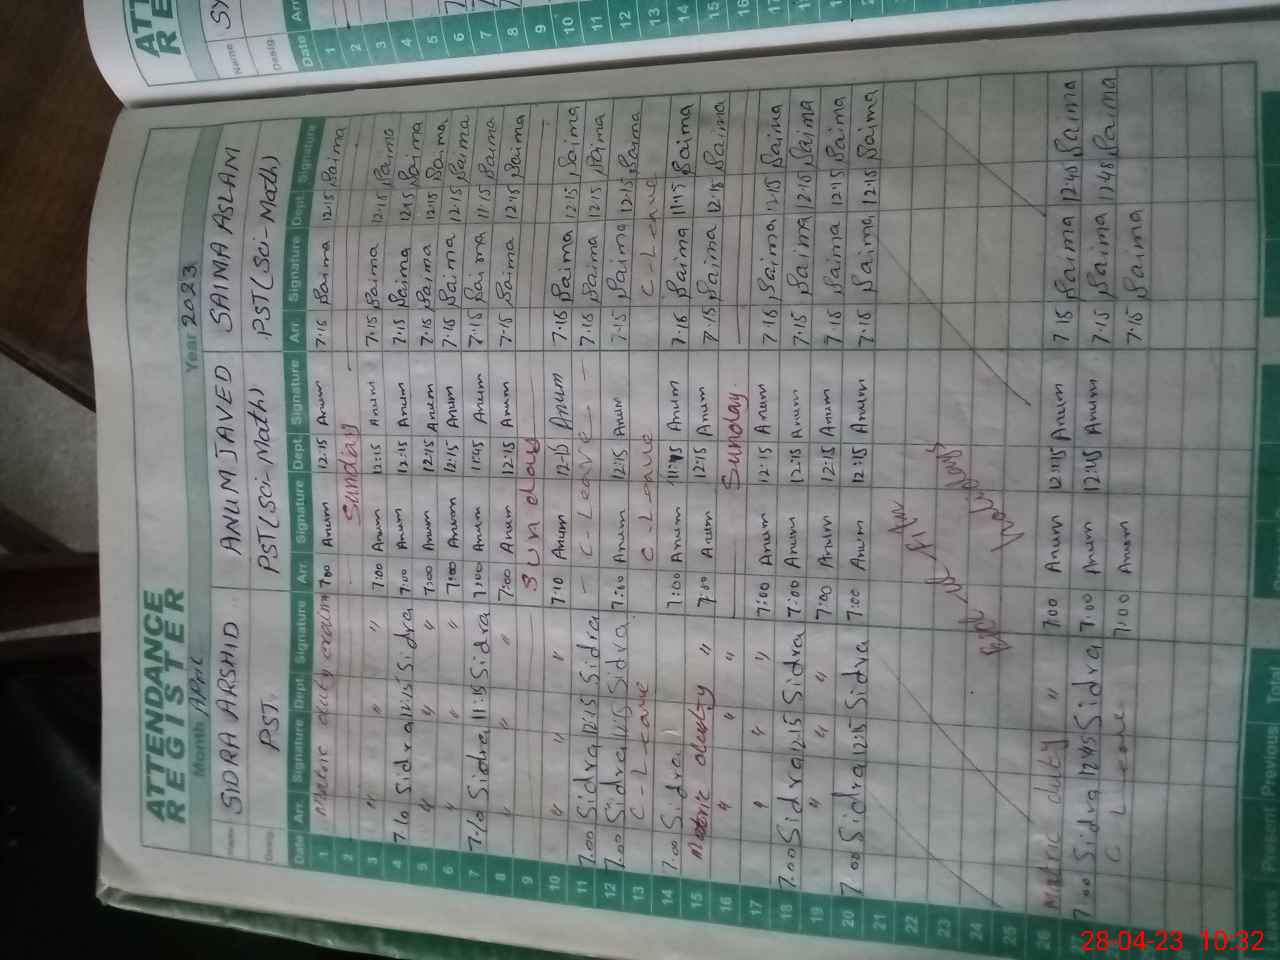 ATTENDANCE
REGISTER
Month April Year 2023
SIDRA ARSHID ANUM JAVED SAIMA ASLAM
PST. PST(Sci-Math) PST(Sci-Math)
Date Arr. Signature Dept. Signature Arr. Signature Dept. Signature Arr. Signature Dept. Signature
1 Matric duty 7:00 Anum 12:15 Anum 7:15 Saima 12:15 Saima
2 Sunday
3 " " " 7:00 Anum 12:15 Anum 7:15 Saima 12:15 Saima
4 7:10 Sidra 12:15 Sidra 7:00 Anum 12:15 Anum 7:15 Saima 12:15 Saima
5 " " " 7:00 Anum 12:15 Anum 7:15 Saima 12:15 Saima
6 " " " 7:00 Anum 12:15 Anum 7:15 Saima 12:15 Saima
7 7:10 Sidra 11:15 Sidra 7:00 Anum 11:45 Anum 7:15 Saima 11:15 Saima
8 " " " 7:00 Anum 12:15 Anum 7:15 Saima 12:15 Saima
9 Sunday
10 " " " 7:10 Anum 12:15 Anum 7:15 Saima 12:15 Saima
11 7:00 Sidra 12:15 Sidra - C-Leave - - 7:15 Saima 12:15 Saima
12 7:00 Sidra 12:15 Sidra 7:00 Anum 12:15 Anum 7:15 Saima 12:15 Saima
13 C-Leave C-Leave C-Leave
14 7:00 Sidra 7:00 Anum 11:45 Anum 7:15 Saima 11:45 Saima
15 Matric duty " 7:00 Anum 12:15 Anum 7:15 Saima 12:15 Saima
16 " " " Sunday
17 " " " 7:00 Anum 12:15 Anum 7:15 Saima 12:15 Saima
18 7:00 Sidra 12:15 Sidra 7:00 Anum 12:15 Anum 7:15 Saima 12:15 Saima
19 " " " 7:00 Anum 12:15 Anum 7:15 Saima 12:15 Saima
20 7:00 Sidra 12:15 Sidra 7:00 Anum 12:15 Anum 7:15 Saima 12:15 Saima
21
22
23 Eid ul fitr
24 holidays
25
26 Matric duty " 7:00 Anum 12:45 Anum 7:15 Saima 12:45 Saima
7:00 Sidra 12:45 Sidra 7:00 Anum 12:45 Anum 7:15 Saima 12:45 Saima
C Leave 7:00 Anum 7:15 Saima
Present Previous Total
28-04-23 10:32